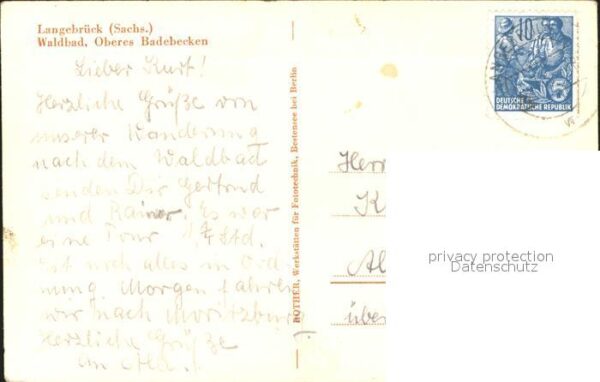 Langebrück (Sachs.)
Waldbad, Oberes Badebecken
Lieber Kurt!
Herzliche Grüße von
unserer Wanderung
nach dem Waldbad
senden Dir Gertrud
und Rainer. Es war
eine Tour Std.
Ist noch alles in Ord-
nung. Morgen fahren
wir nach Moritzburg
Herzliche Grüße
an
ROTHER, Werkstätten für Fototechnik, Beetensee bei Berlin
10
DEUTSCHE
DEMOKRATISCHE REPUBLIK
5
Herr
K
Al
über
privacy protection
Datenschutz